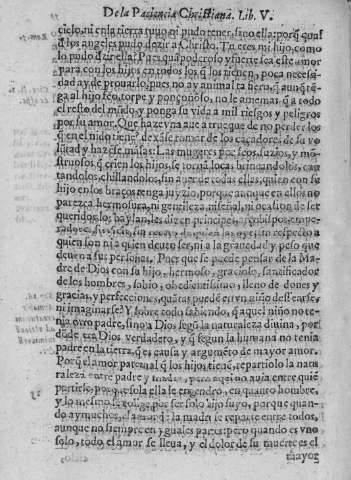 De la Paciencia Christiana. Lib. V.
cielo, ni en la tierra tuuo ni pudo tener, sino ella: porq̃ qual
d̃ los angeles pudo dezir a Christo, Tu eres mi hijo, como
lo pudo dezir ella? Pues quã poderoso y fuerte sea este amor
para con los hijos en todos los q̃ los tienen, poca necessi-
dad ay de prouarlo, pues no ay animal tã fiero, q̃ aunq̃ tẽ-
ga al hijo feo, torpe y ponçoñoso, no le ame mas q̃ a todo
el resto del mũdo, y ponga su vida a mil riesgos y peligros
por su amor. Que haze vna aue a trueque de no perder los
q̃ en el nido tiene? dexase tomar de los caçadores de su vo-
lũtad y haze se mãsa: Las mugeres por feos, suzios, y mõ-
struosos q̃ criẽn los hijos, se tornã locas brincandolos, can
tandolos, chillandolos, sin aquerer todas ellas, quien con su
hijo en los braços tenga juyzio, porque aunque en ellos no
parezca hermosura, ni gentileza niseñal, ni ocasion de ser
queridos, los haylan, les dizen principes, arçobispos, empe-
radores,
quien son ni a quien deuen ser, ni a la grauedad y peso que
deuen a sus personas. Pues que se puede pensar de la Ma-
dre de Dios con su hijo, hermoso, gracioso, santificador
de los hombres, sabio, obedientissimo, lleno de dones y
gracias, y perfecciones, quãtas puedẽ en vn niño dessearse,
ni imaginarse? Y sobre todo sabiendo, q̃ aquel niño no te-
nia otro padre, sino a Dios segũ la naturaleza diuina, por
dõde era Dios verdadero, y q̃ segun la humana no tenia
padre en la tierra, q̃ es causa y argumẽto de mayor amor.
Porq̃ el amor paternal q̃ los hijos tienẽ, repartiolo la natu
raleza entre padre y madre, pero aqui no auia entre quiẽ
partirle, porque sola ella le engendro, en quanto hombre,
y lo mesmo se colige por ser solo hijo suyo, porque quan-
do ay muchos, el amor q̃ la madre se reparte entre todos,
aunque no siempre en yguales partes: pero quando es vno
solo, todo el amor se lleua, y el dolor de su muerte es el
mayor